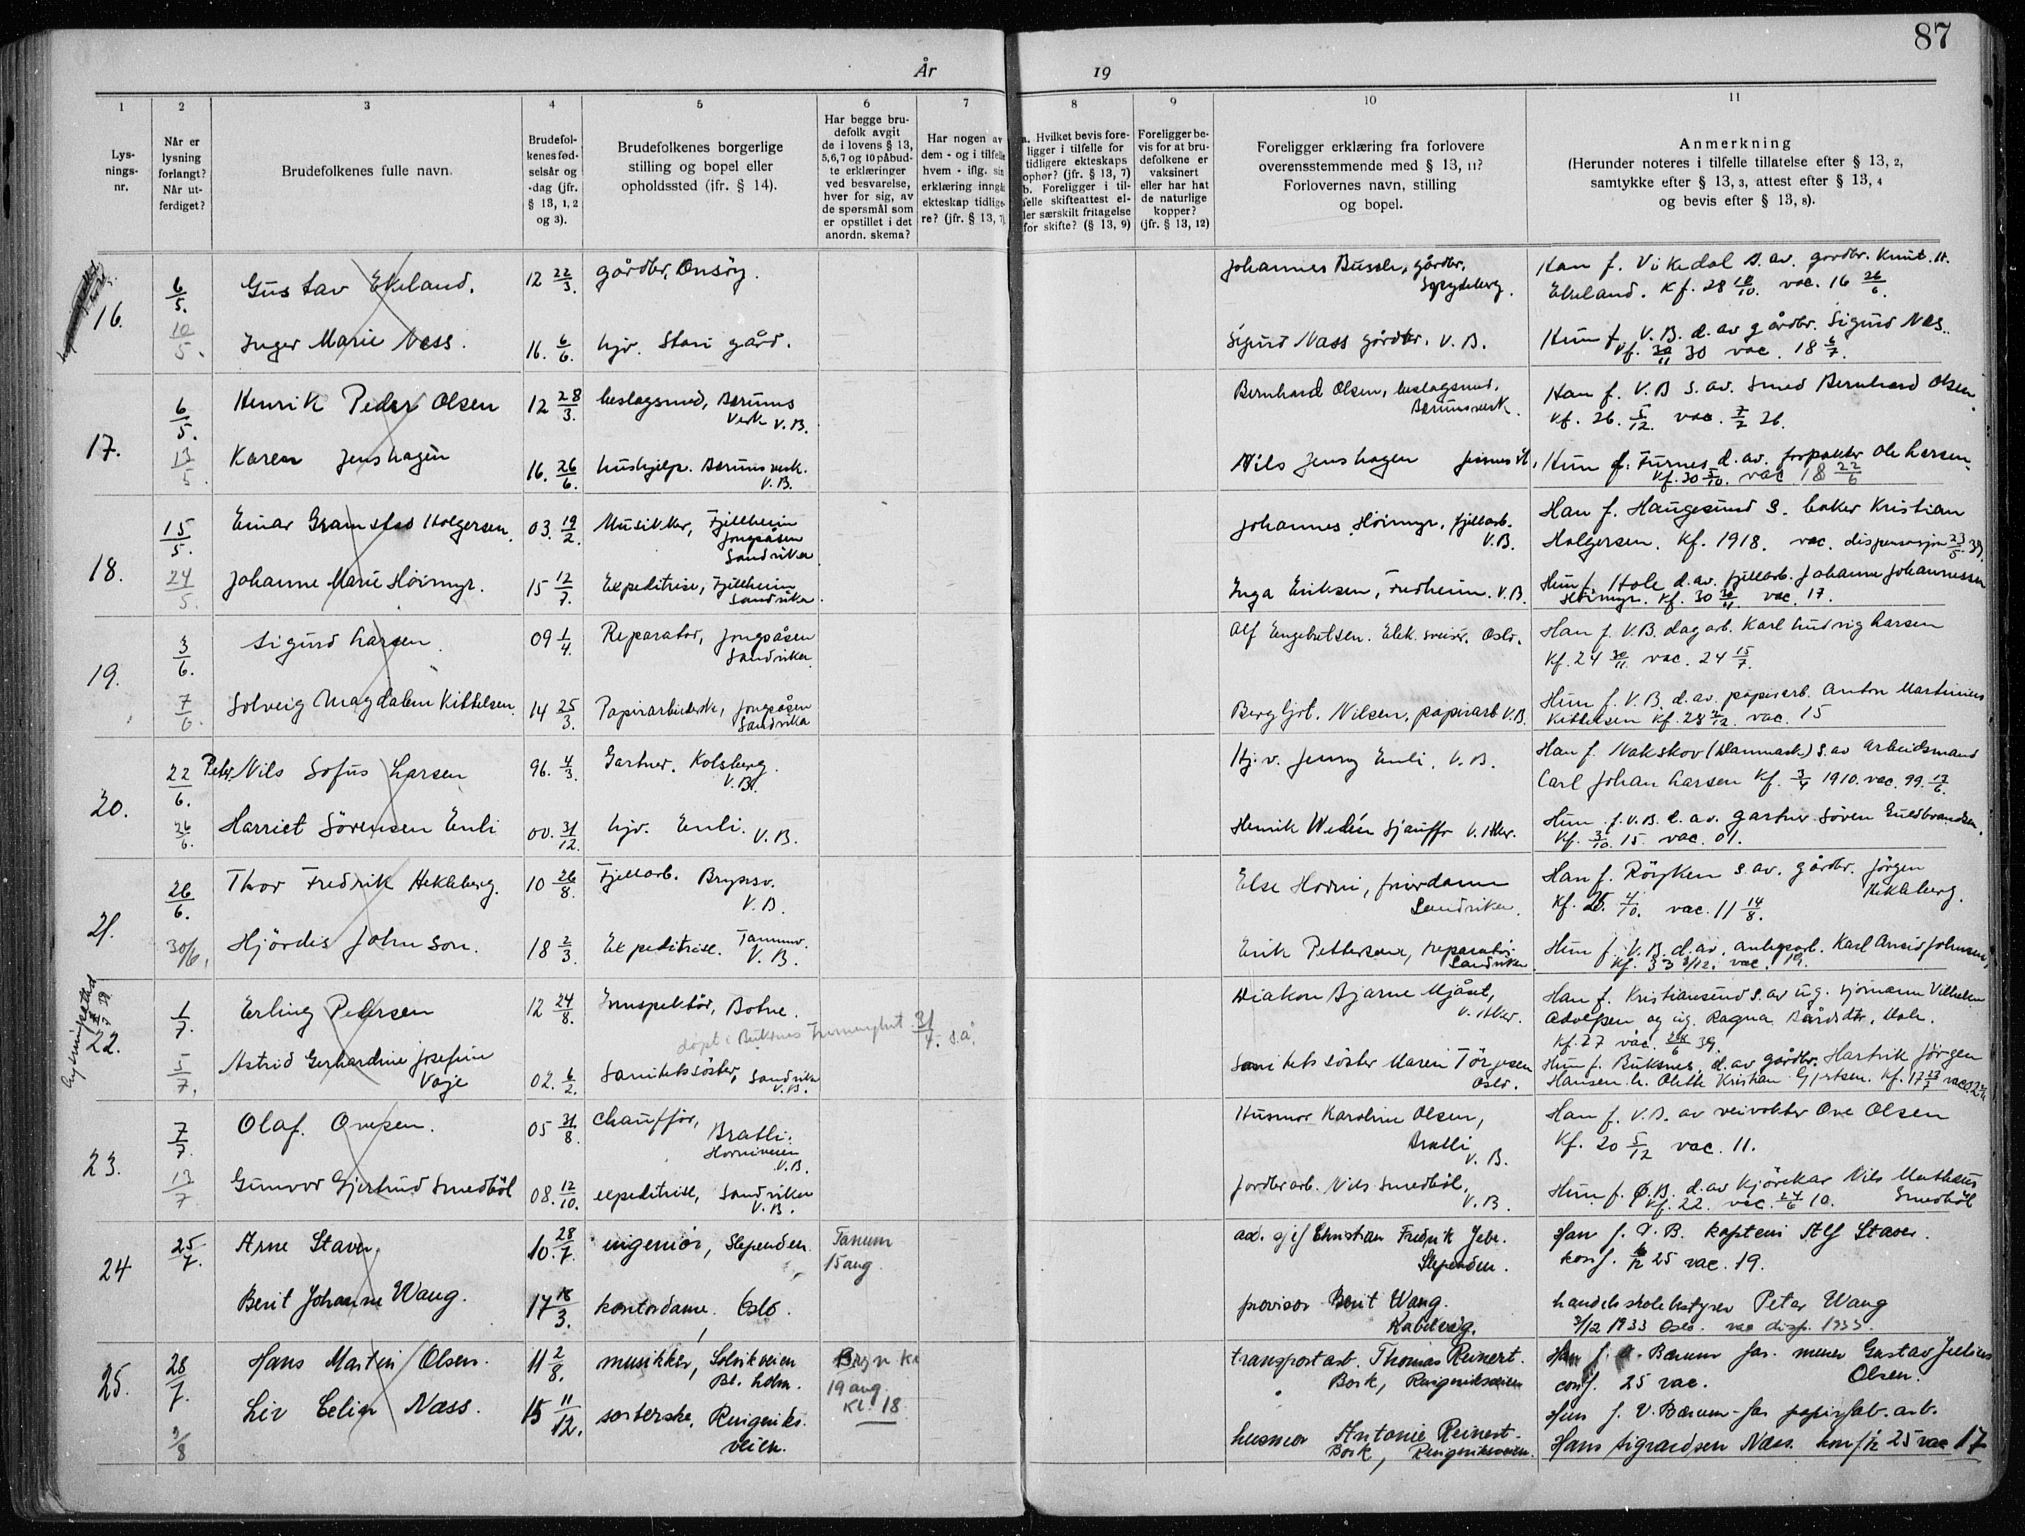 87
År 19
1 2 3 4 5 6 7 8 9 10 11
Lys-
nings-
nr.
Når er
lysning
forlangt?
Når ut-
ferdiget?
Brudefolkenes fulle navn.
Brudefol-
kenes fød-
selsår og
-dag (jfr.
§ 13, 1, 2
og 3).
Brudefolkenes borgerlige
stilling og bopel eller
opholdssted (jfr. § 14).
Har begge bru-
defolk avgit
de i lovens § 13,
5, 6, 7 og 10 påbud-
te erklæringer
ved besvarelse,
hver for sig, av
de spørsmål som
er opstillet i det
anordn. skema?
Har nogen av
dem - og i tilfelle
hvem - iflg. sin
erklæring inngåt
ekteskap tidlige-
re? (jfr. § 13, 7)
a. Hvilket bevis fore-
ligger i tilfelle for
tidligere ekteskaps
ophør? (jfr. § 13, 7)
b. Foreligger i til-
felle skifteattest el-
ler særskilt fritagelse
for skifte? (§ 13, 9)
Foreligger be-
vis for at bru-
defolkene er
vaksinert
eller har hat
de naturlige
kopper?
(jfr. § 13, 12)
Foreligger erklæring fra forlovere
overensstemmende med § 13, 11?
Forlovernes navn, stilling
og bopel.
Anmerkning
(Herunder noteres i tilfelle tillatelse efter § 13, 2,
samtykke efter § 13, 3, attest efter § 13, 4
og bevis efter § 13, 8).
16. 6/5. Gustav Ekeland. 12 22/3. gårdbr. Onsøy. Johannes Bussle, gårdbr. Han f. Vikedal s. av. gardbr. Knut H.
Spydeberg. Ekeland. Kf. 28 /10. vac. 16 26/6.
10/5. Inger Marie Næss. 16. 6/6. hjv. Stavi gård. Sigurd Næss gårdbr. V.B. Hun f. V.B. d. av gårdbr. Sigurd Næs.
Kf. 30/11 30 vac. 18 6/7.
17. 6/5. Henrik Peder Olsen 12 28/3. beslagsmed, Bærums Verk V.B. Bernhard Olsen, beslagsmed, Bærumsverk. Han f. V.B s. av. Smed Bernhard Olsen.
Kf. 26. 5/12. vac. 7/2 26.
13/5 Karen Jenshagen 16. 26/6. hushjelp. Bærums verk. V.B. Nils Jenshagen Hun f. Furnes d. av. forpakter Ole Larsen.
Kf. 30 5/10. vac 18 22/6
18. 15/5. Einar Gramstad Holgersen. 03. 19/2. Musikker, Fjellheim Jongsåsen Sandvika Johannes Høimyr, fjellarb. V.B. Han f. Haugesund S. baker Kristian
Holgersen. Kf. 1918. vac. dispensasjon 23/5 39.
24/5. Johanne Marie Høimyr. 15 12/7. Ekspeditrise, Fjellheim Sandvika Inga Eriksen, Fredheim. V.B. Hun f. Hole d. av. fjellarb. Johannes Johannessen
Høimyr. Kf. 30 30/11 vac. 17.
19. 3/6. Sigurd Larsen. 09 1/4. Reparatør, Jongsåsen Sandvika. Alf Engebretsen. Elek. sveiser. Oslo. Han f. V.B. dagarb. Karl Ludvig Larsen
Kf. 24 30/11 vac. 24 15/7.
7/6. Solveig Magdalene Kittelsen. 14 25/3. Papirarbeiderske, Jongsåsen Sandvika Bergljot. Nilsen, papirarb V.B. Hun f. V.B. d. av. papirarb. Anton Martinius
Kittelsen Kf. 28 2/12. vac. 15
20. 22/6. Peter Nils Sofus Larsen 96. 4/3. Gartner. Kolsberg. V.B. Hj.v. Jenny Enli. V.B. Han f. Nakskov (Danmark) S. av Arbeidsmand
Carl Johan Larsen Kf. 3/4 1910. vac. 99. 17/6.
26/6. Harriet Sørensen Enli 00. 31/12. hjv. Enli. V.B. Henrik Wedén Sjauffr V. Aker. Hun f. V.B. d. av. gartner Søren Guldbrandsen.
Kf. 3/10. 15. vac. 01.
21. 26/6. Thor Fredrik Hekleberg. 10 26/8. Fjellarb. Brynsv. V.B. Else Horni, frisørdame Sandvika. Han f. Røyken s. av. gårdbr. Jørgen Hekleberg.
Kf. 25. 4/10. vac. 11 14/8.
30/6. Hjørdis Johnson. 18 2/3. Ekspeditrise. Tanumv. V.B. Erik Pettersen, reparatør Sandvika Hun f. V.B. d. av. anlegsarb. Karl Arvid Johnsen,
Kf. 33 3/12. vac. 19.
22. 1/7. Erling Pedersen 12 24/8. Innspektør, Botne. Diakon Bjarne Mjåset, V. Aker. Han f. Kristiansund s. av ug. sjømann Vilhelm
Adolfsen og ug. Ragna Bårdsdtr, Hole.
døpt i Buksnes 31/7. s.å. Kf. 27 vac. 6 39.
5/7. Astrid Gerhardine Josefine Voje 02. 6/2. Sanitetssøster, Sandvika V.B. Sanitetssøster Maren Tørjesen Oslo. Hun f. Buksnes, d. av gårdbr. Hartvik Jørgen
Hansen h. Olette Kristian Gjertsen. Kf. 17 23/7
23. 7/7. Olaf. Ovesen. 05 31/8. Chauffør, Bratli. Horniveien V.B. Husmor Karoline Olsen, Bratli V.B. Han f. V.B. av veivokter Ove Olsen
Kf. 20 5/12 vac. 11.
13/7 Gunvor Gjertrud Smedbøl 08. 12/10. ekspeditrise, Sandvika V.B. Jordbrarb. Nils Smedbøl, V.B. Hun f. Ø.B. d. av Kjørekar Nils Mathæus Smedbøl
Kf. 22. vac. 24/6 10.
24 25/7. Arne Staver, 10. 28/7. ingeniør, Slependen. Tanum 15 aug. Christian Fredrik Jebe. Slependen. Han f. V. B. kaptein Alf Staver.
konf. 25 vac. 19.
Berit Johanne Wang. 17 18/3. kontordame. Oslo. provisor Berit Wang. Kabelvåg. handelsskolebestyrer Peter Wang
3/12 1933 Oslo. vac disp. 1933.
25. 28/7. Hans Martin Olsen. 11 2/8. musikker, Solvikveien Bl. holm. Bryn k. 19 aug. Kl. 18 transportarb. Thomas Reinert. Bork, Ringeriksveien Han f. V. Bærum far. murer Gustav Julius Olsen.
conf. 25 vac.
9/8 Liv Celia Næss. 15 11/12. sorterske, Ringeriks. veien. husmor Antonie Reinert- Bork, Ringeriksveien. Hun f. V. Bærum - far papirfab. arb.
Hans Sigvardsen Næss. konf 25 vac 17